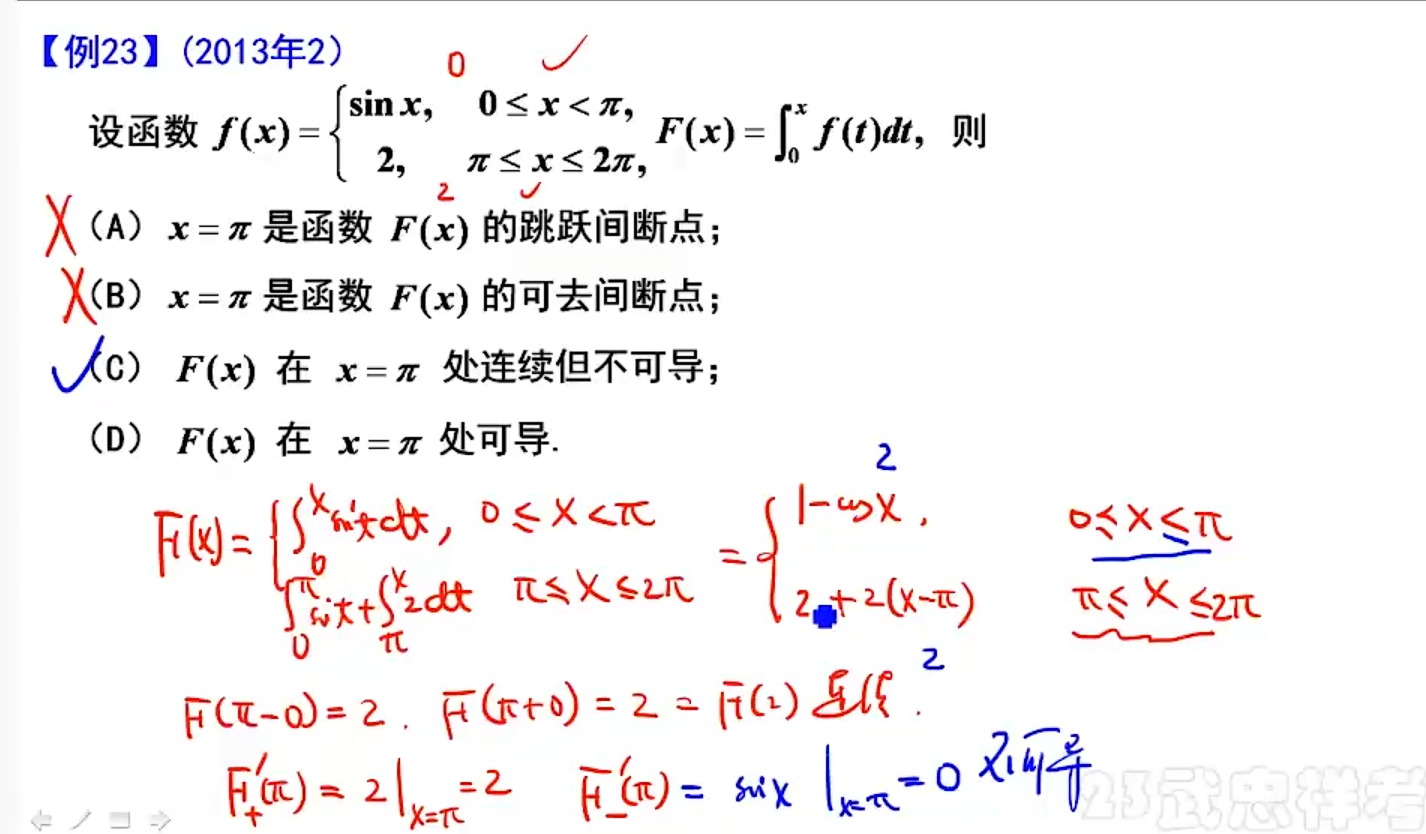 【例23】(2013年2)
0 ✓
设函数 f(x) = { sin x, 0 ≤ x < π, 2, π ≤ x ≤ 2π, F(x) = ∫₀ˣ f(t)dt, 则
2 ✓
X (A) x = π 是函数 F(x) 的跳跃间断点;
X (B) x = π 是函数 F(x) 的可去间断点;
✓ (C) F(x) 在 x = π 处连续但不可导;
(D) F(x) 在 x = π 处可导.
2
F(x) = { ∫₀ˣ sin t dt, 0 ≤ x < π = { 1 - cos x, 0 ≤ x ≤ π
∫₀^π sin t + ∫_π^x 2dt π ≤ x ≤ 2π 2 + 2(x-π) π ≤ x ≤ 2π
2
F(π-0) = 2. F(π+0) = 2 = F(2) 连续.
F₊'(π) = 2|ₓ₌π = 2 F₋'(π) = sin x |ₓ₌π = 0 不可导
23武忠祥考